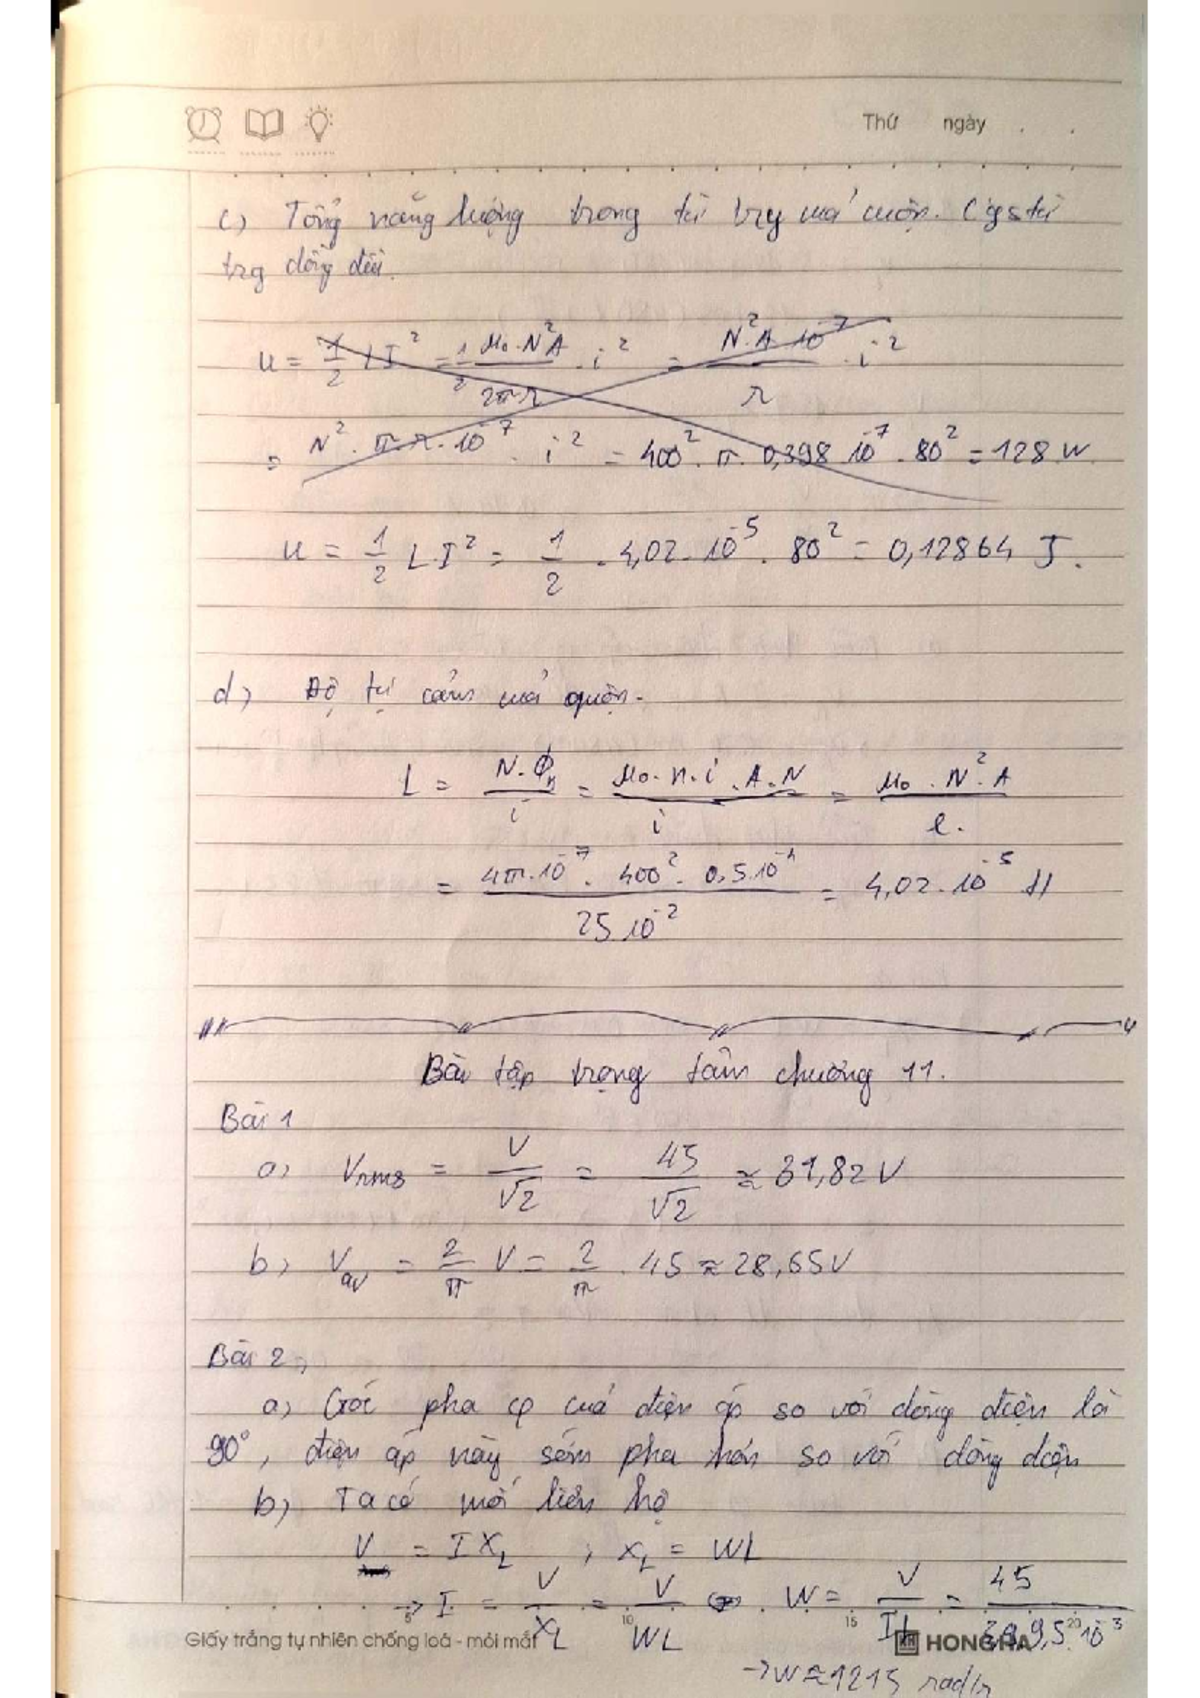 Thứ ngày . .
c) Tổng năng lượng trong từ trg của cuộn. Cg s từ
trg đồng đều.
u = 1/2 LI² = 1/2 μ₀.N²A/2πr . i² = N².A.10⁻⁷/r . i²
= N².π.r.10⁻⁷ . i² = 400².π.0,398.10⁻⁷.80² = 128 W.
u = 1/2 L.I² = 1/2 . 4,02.10⁻⁵.80² = 0,12864 J.
d) Độ tự cảm của quộn.
L = N.Φ/i = μ₀.n.i.A.N/i = μ₀.N².A/l.
= 4π.10⁻⁷.400².0,5.10⁻⁴/25.10⁻² = 4,02.10⁻⁵ H
Bài tập trọng tâm chương 11.
Bài 1
a) Vrms = V/√2 = 45/√2 ≈ 31,82 V
b) Vav = 2/π V = 2/π . 45 ≈ 28,65V
Bài 2,
a) Góc pha φ của điện áp so với dòng điện là
90°, điện áp này sớm pha hơn so với dòng điện
b) Ta có mối liên hệ
V = I X_L ; X_L = WL
→ I = V/X_L = V/WL . W = V/IL = 45/9,5.10⁻³
Giấy trắng tự nhiên chống loá - mỏi mắt
5 10 15 20
HONG HA
→ W ≈ 1215 rad/s